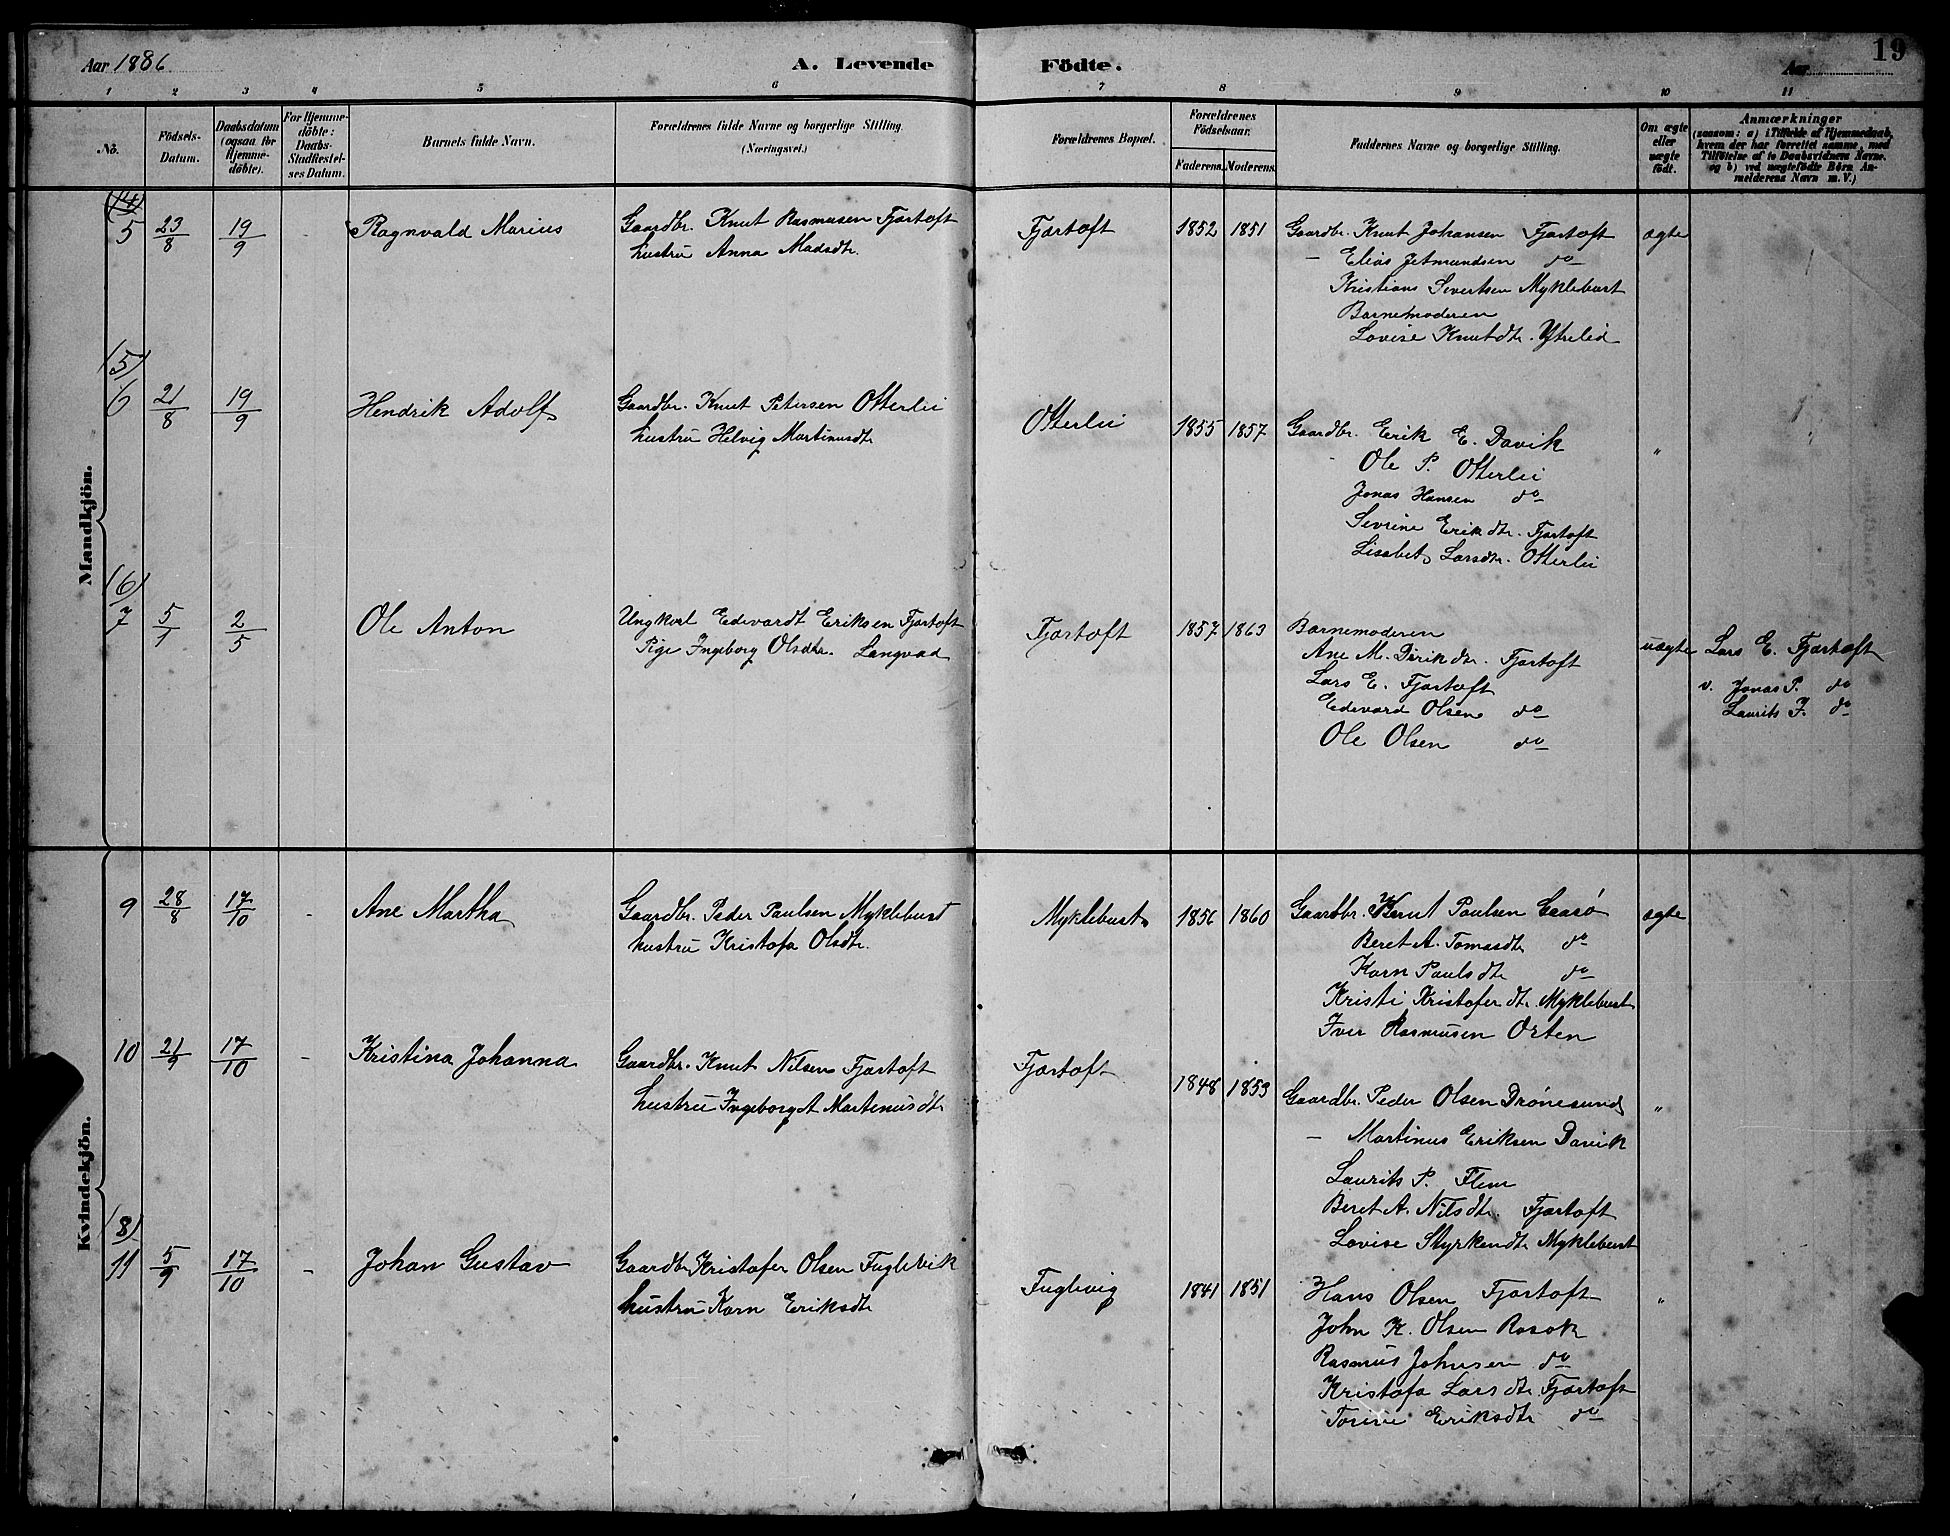 Aar 1886
A. Levende Födte.
Aar
19
1 2 3 4 5 6 7 8 9 10 11
No.
Födsels-Datum.
Daabsdatum (ogsaa for Hjemme-döbte).
For Hjemme-döbte: Daabs-Stadfæstel-ses Datum.
Barnets fulde Navn.
Forældrenes fulde Navne og borgerlige Stilling.
(Næringsvei.)
Forældrenes Bopæl.
Forældrenes Födselsaar.
Faderens. Moderens.
Faddernes Navne og borgerlige Stilling.
Om ægte eller uægte födt.
Anmærkninger
(saasom: a) i Tilfælde af Hjemmedaab,
hvem der har forrettet samme, med
Tilföielse af to Daabsvidners Navne,
og b) ved uægtefödte Börn An-
melderens Navn m. V.)
Mandkjön.
(4)
5 23/8 19/9 - Ragnvald Marius
Gaardbr. Knut Rasmusen Fjærtoft
hustru Anna Madsdtr.
Fjærtoft 1852 1851
Gaardbr. Knut Johansen Fjærtoft
— Elias Jetmundsen do
Kristians Sivertsen Myklebust
Barnemoderen
Lovise Knutdtr. Ytrelid
ægte
(5)
6 21/8 19/9 Hendrik Adolf
Gaardbr. Knut Petersen Otterlei
hustru Helvig Martinusdtr
Otterlei 1855 1857
Gaardbr. Erik E. Davik
- Ole P. Otterlei
Jonas Hansen do
Sevrine Erikdtr. Fjærtoft
Lisabet Larsdtr. Otterlei
"
(6)
7 5/1 2/5 Ole Anton
Ungkarl Edevardt Eriksen Fjærtoft
Pige Ingeborg Olsdtr. Langvad
Fjærtoft 1857 1863
Barnemoderen
Ane M. Dirikdtr. Fjærtoft
Lars E. Fjærtoft
Edevard Olsen do
Ole Olsen do
uægte
Lars E. Fjærtoft
v. Jonas P. do
Laurits J. do
Kvindekjön.
9 28/8 17/10 - Ane Martha
Gaardbr. Peder Paulsen Myklebust
hustru Kristofa Olsdtr.
Myklebust 1856 1860
Gaardbr. Knut Paulsen
Beret A. Tomasdtr do
Karn Paulsdtr do
Kristi Kristoferdtr. Myklebust
Iver Rasmusen Orten
ægte
10 21/9 17/10 - Kristina Johanna
Gaardbr. Knut Nilsen Fjærtoft
hustru Ingeborg A Martinusdtr
Fjærtoft 1848 1853
Gaardbr. Peder Olsen Drønesund
— Martinus Eriksen Davik
Laurits P. Flem
Beret A. Nilsdtr. Fjærtoft
Lovise Styrkerdtr Myklebust
"
(8)
11 5/9 17/10 - Johan Gustav
Gaardbr Kristofer Olsen Fuglevik
hustru Karn Eriksdtr
Fuglevig 1841 1851
Hans Olsen Fjærtoft
John K. Olsen Rasok
Rasmus Johnsen do
Kristofa Larsdtr. Fjærtoft
Eriksdtr do
"